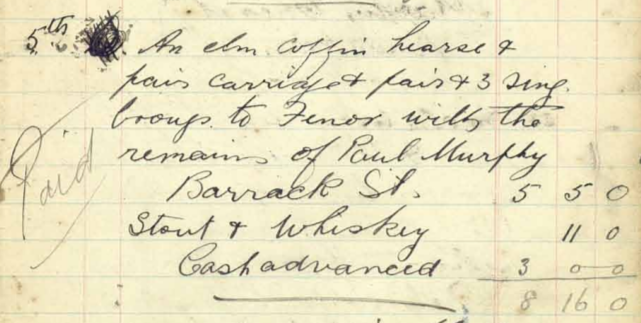 5th An elm coffin hearse &
pair carriage & pair & 3 sing.
broughs. to Fenor with the
remains of Paul Murphy
Barrack St. 5 5 0
Stout & Whiskey 11 0
Cash advanced 3 0 0
8 16 0
Paid